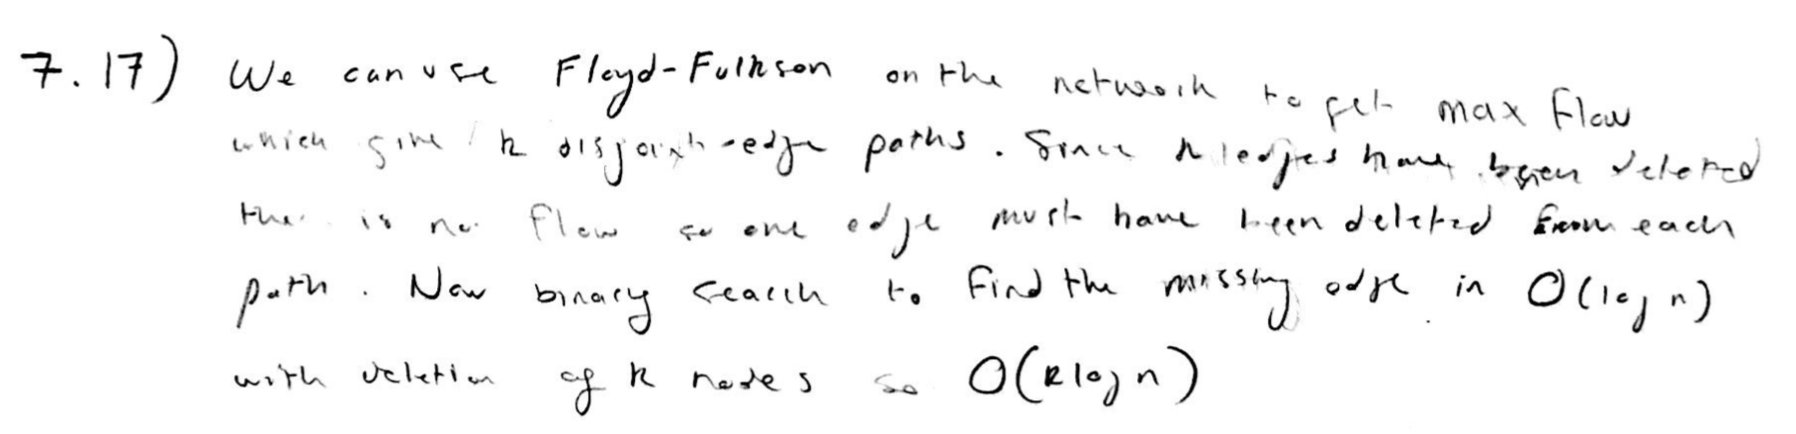 7.17) We can use Floyd-Fulkson on the network to get max flow
which give k disjoint-edge paths. Since k edges have been deleted
ther is no flow so one edge must have been deleted from each
path. Now binary search to find the missing edge in O(log n)
with deletion of k nodes so O(k log n)